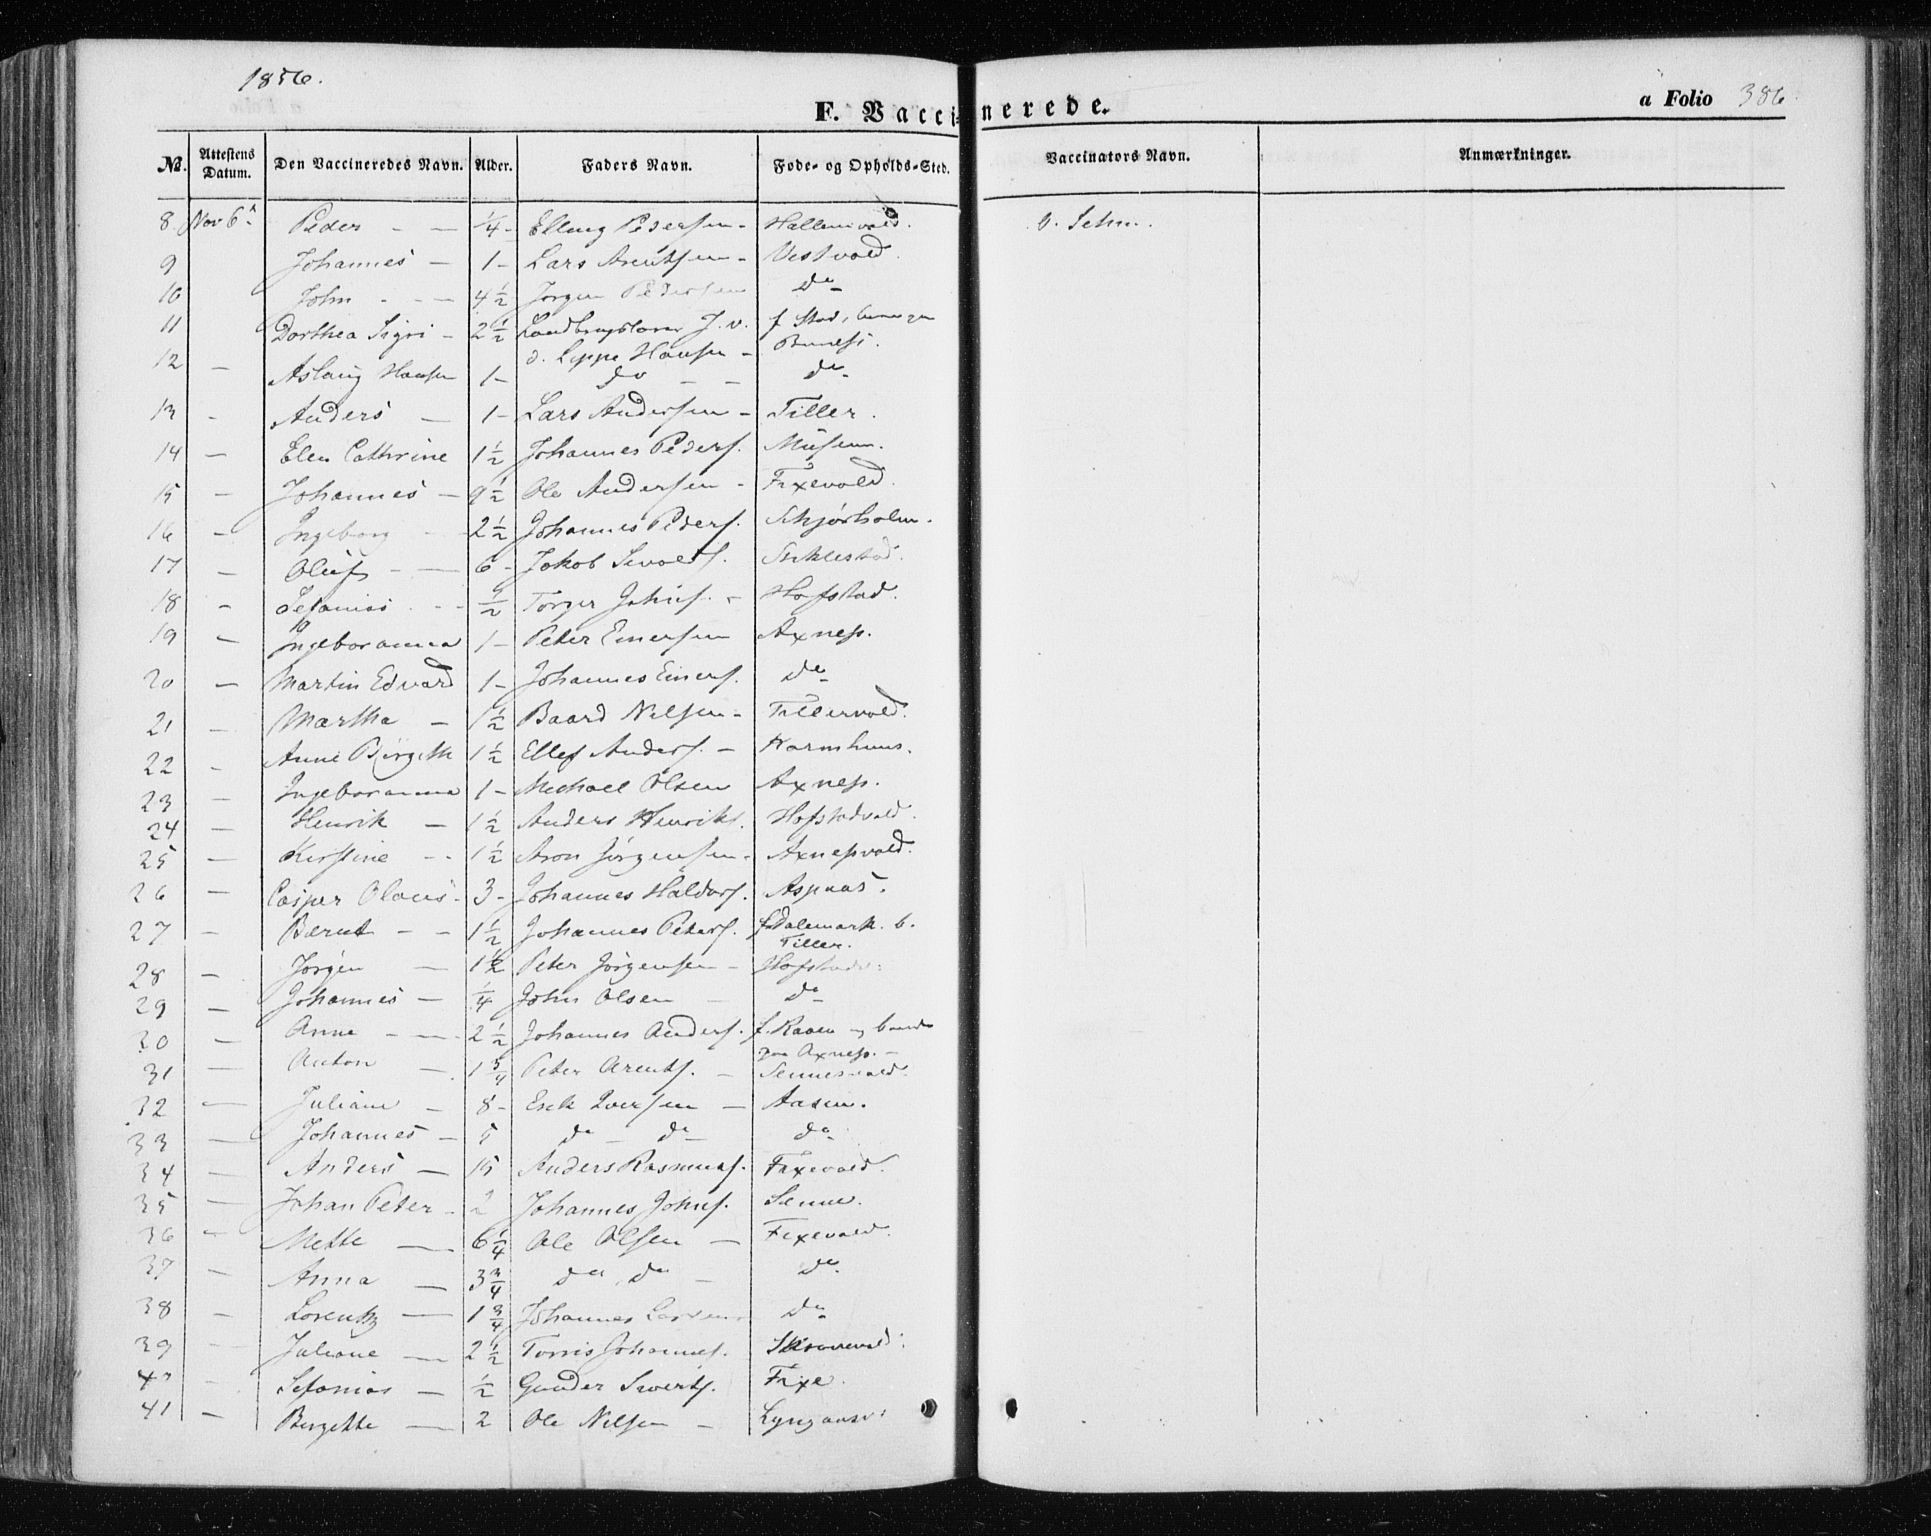 1856.
F. Vaccinerede.
a Folio 386.
No. Attestens Datum. Den Vaccineredes Navn. Alder. Faders Navn. Føde- og Opholds-Sted. Vaccinators Navn. Anmærkninger.
8 Nov 6 Peder - - 1/4 - Elling Pedersen -
9 Johannes - 1 - Lars Arentsen - Vestvold.
10 John - - 4 1/2 Jørgen Pedersen do
11 Dorthea Sigri - 2 1/2 J. v.
d. Lippe Hansen -
12 - Aslaug Hansen 1 - do - - do
13 - Anders - 1 - Lars Andersen - Tiller.
14 - Elen Cathrine 1 1/2 Johannes Peders. Musem.
15 - Johannes - 9 1/2 Ole Andersen - Fixevold.
16 - Ingeborg - 2 1/2 Johannes Peders. Schjørholm.
17 - Oluf - - 6 - Jakob Stiklestad.
18 - Sefanias - - Torger Johns. - Hofstad.
19 - Ingeboranna 1 - Peter Einersen Axness.
20 - Martin Edvard 1 - Johannes Einers. do
21 - Martha - 1 1/2 Baard Nilsen - Tillervold.
22 - Anne Birgith 1 1/2 Ellef Anders. -
23 - Ingeboranna 1 - Michael Olsen Axness.
24 - Henrik - 1 1/2 Anders Henriks. Hofstadvald.
25 - Kirstine - - 1 1/2 Aron Jørgensen - Axnesvald.
26 - Casper Olaus - 3 - Johannes Haldors. Aspaas.
27 - Bernt - - 1 1/2 Johannes Peters. f. Dalemark. b.
Tiller.
28 - Jørgen - 1 1/2 Peter Jørgensen -
29 - Johannes - 1/4 John Olsen - do
30 - Anne - - 2 1/2 Johannes Anders. f. Raaen og
paa Axness. -
31 Anton - 1 3/4 Peter Arents. -
32 - Juliane - 8 - Erik Iversen - Aasen.
33 - Johannes - 5 do - do - do
34 - Anders - 15 Anders Rasmus. Fixevald.
35 - Johan Peter - 2 Johannes Johns. Senne.
36 - Mette - 6 1/4 Ole Olsen - Fixevald.
37 - Anna - 3 3/4 do do - do
38 - Lorentz - 1 3/4 Johannes Larsen do
39 - Juliane - 2 1/2 Torris Johannes.
40 - Sefanias - 1/2 Gunder Siverts. Fixe.
41 - Bergitte - 2 Ole Nilsen -